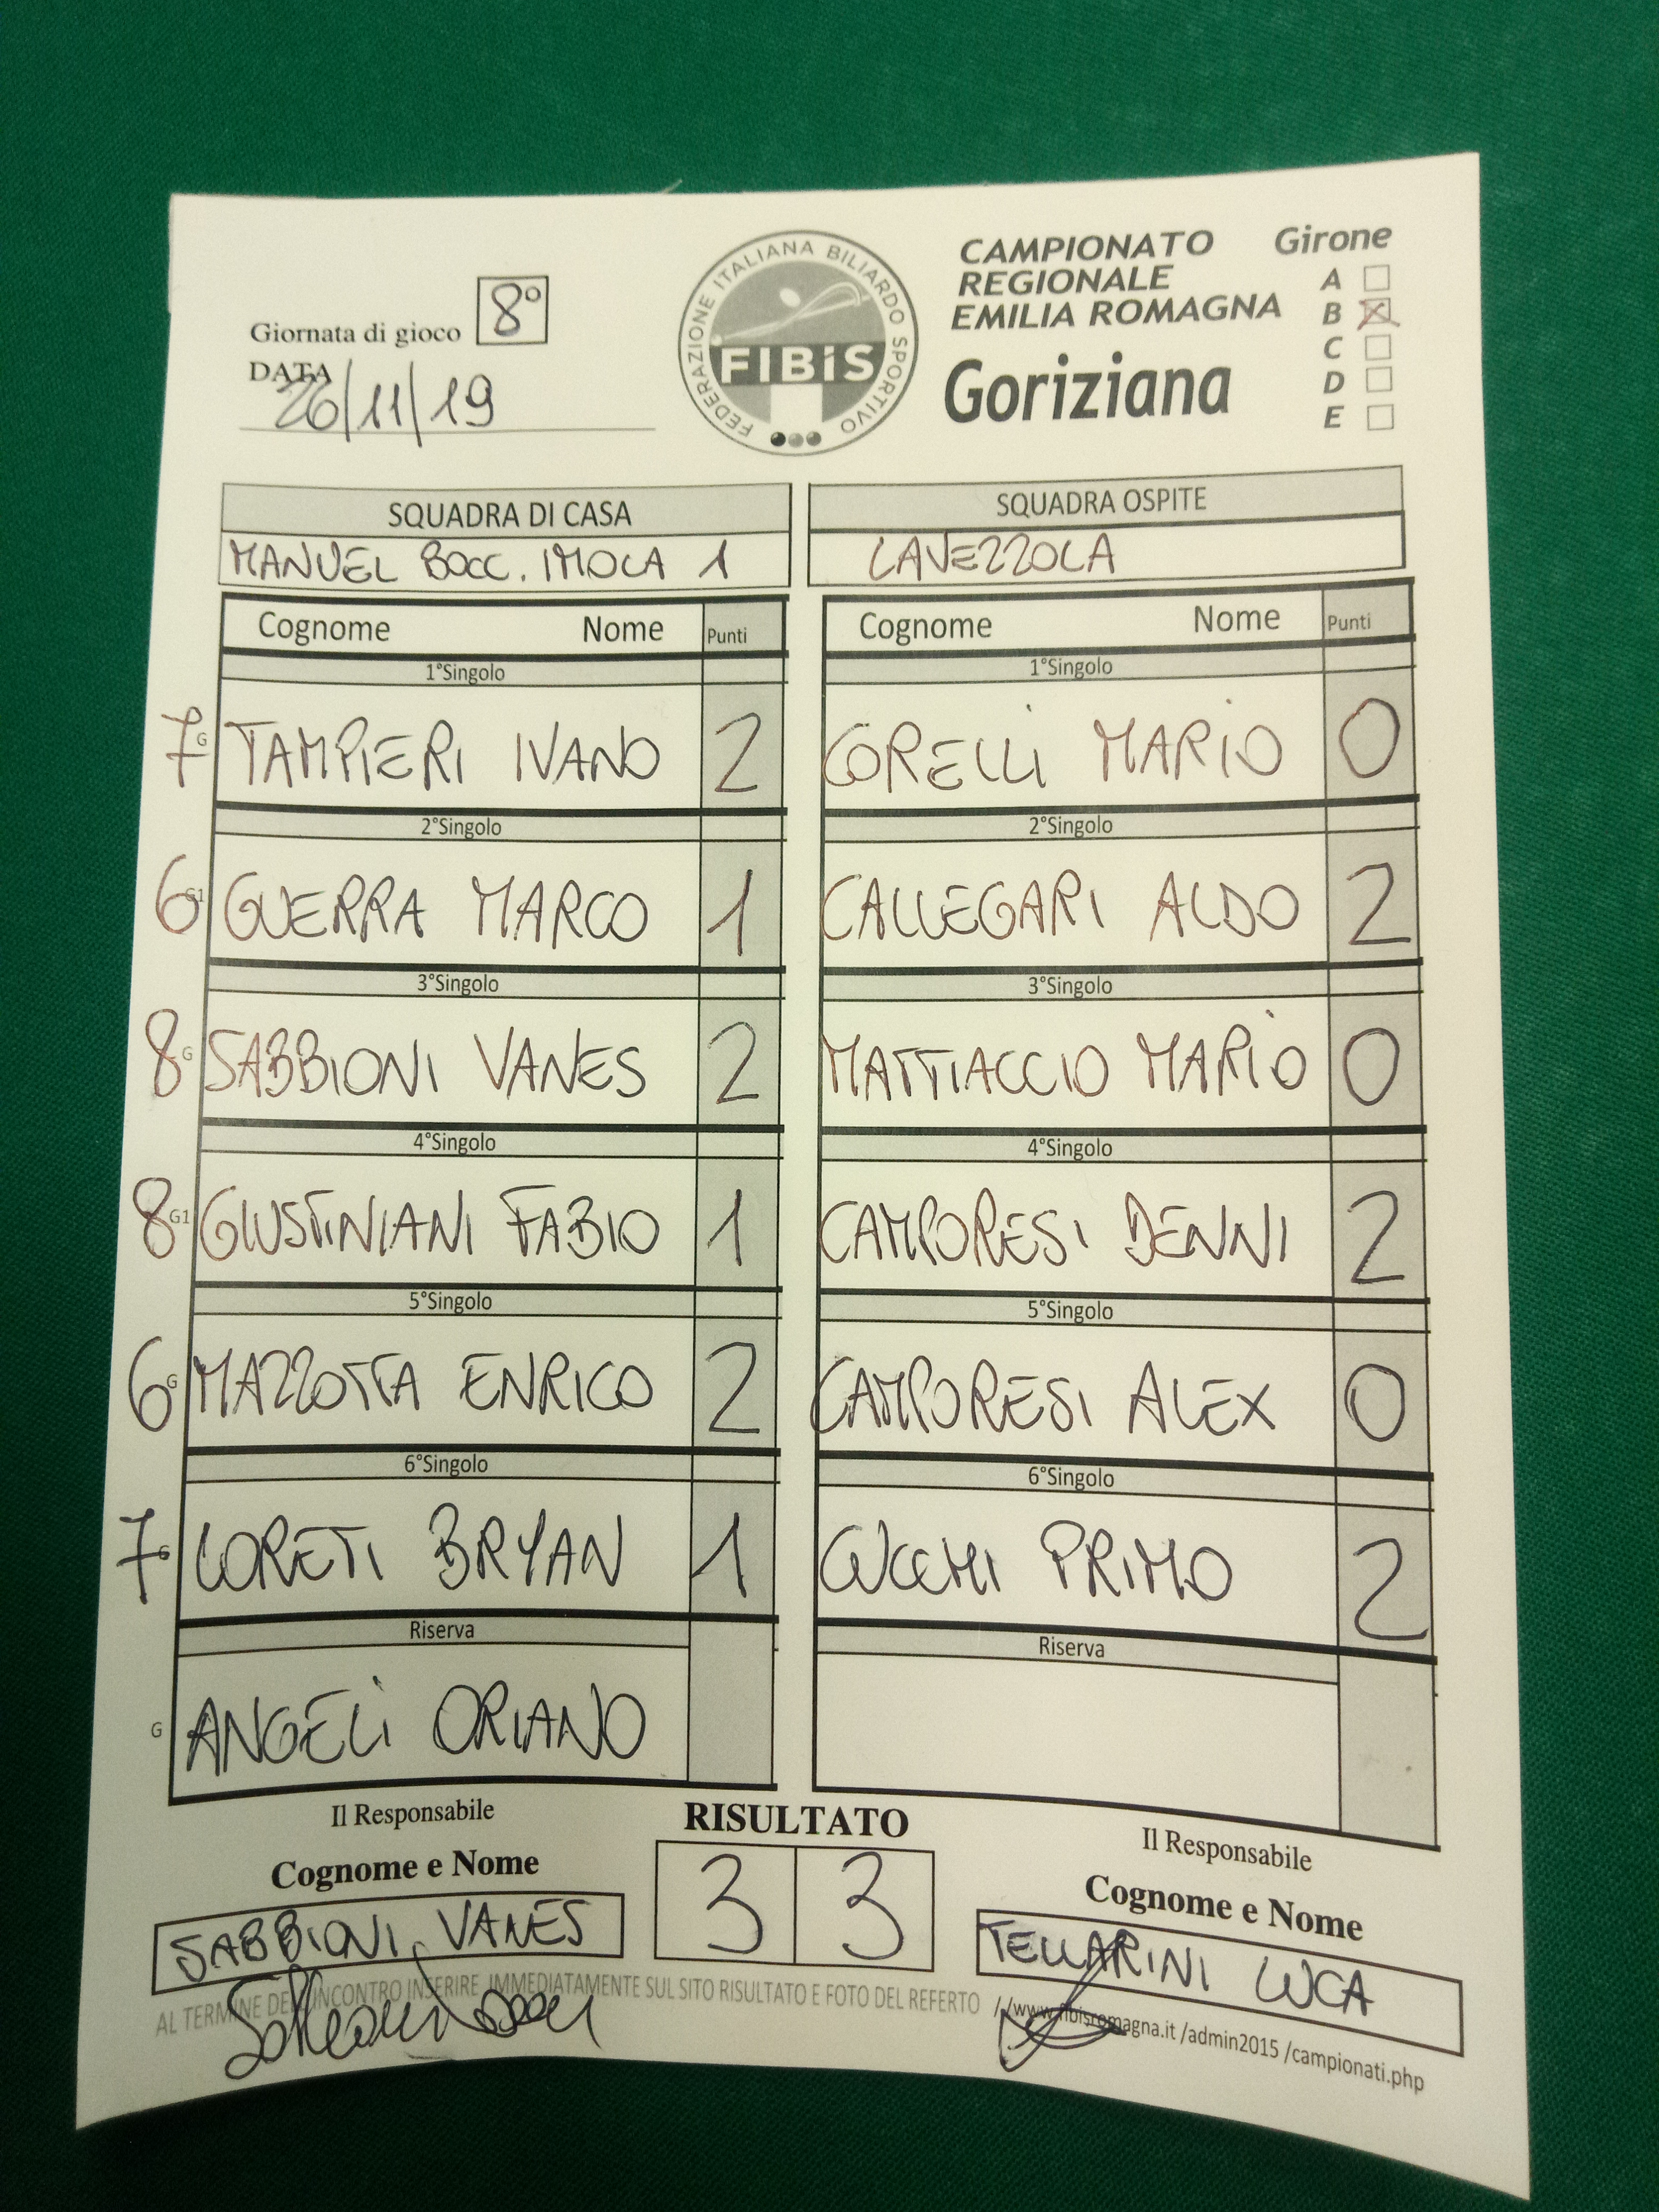 Giornata di gioco 8°
DATA
26/11/19
FEDERAZIONE ITALIANA BILIARDO SPORTIVO
FIBiS
CAMPIONATO
REGIONALE
EMILIA ROMAGNA
Goriziana
Girone
A
B X
C
D
E
SQUADRA DI CASA SQUADRA OSPITE
MANUEL BOCC. IMOLA 1 LAVEZZOLA
Cognome Nome Punti Cognome Nome Punti
1°Singolo 1°Singolo
7 G TAMPIERI IVANO 2 CORELLI MARIO 0
2°Singolo 2°Singolo
6 G1 GUERRA MARCO 1 CALLEGARI ALDO 2
3°Singolo 3°Singolo
8 G SABBIONI VANES 2 MATTIACCIO MARIO 0
4°Singolo 4°Singolo
8 G1 GIUSTINIANI FABIO 1 CAMPORESI DENNI 2
5°Singolo 5°Singolo
6 G MAZZOTTA ENRICO 2 CAMPORESI ALEX 0
6°Singolo 6°Singolo
7 G LORETI BRYAN 1 CUCCHI PRIMO 2
Riserva Riserva
G ANGELI ORIANO
Il Responsabile RISULTATO Il Responsabile
Cognome e Nome 3 3 Cognome e Nome
SABBIONI VANES TELLARINI LUCA
AL TERMINE DELL'INCONTRO INSERIRE IMMEDIATAMENTE SUL SITO RISULTATO E FOTO DEL REFERTO //www.fibisromagna.it /admin2015 /campionati.php